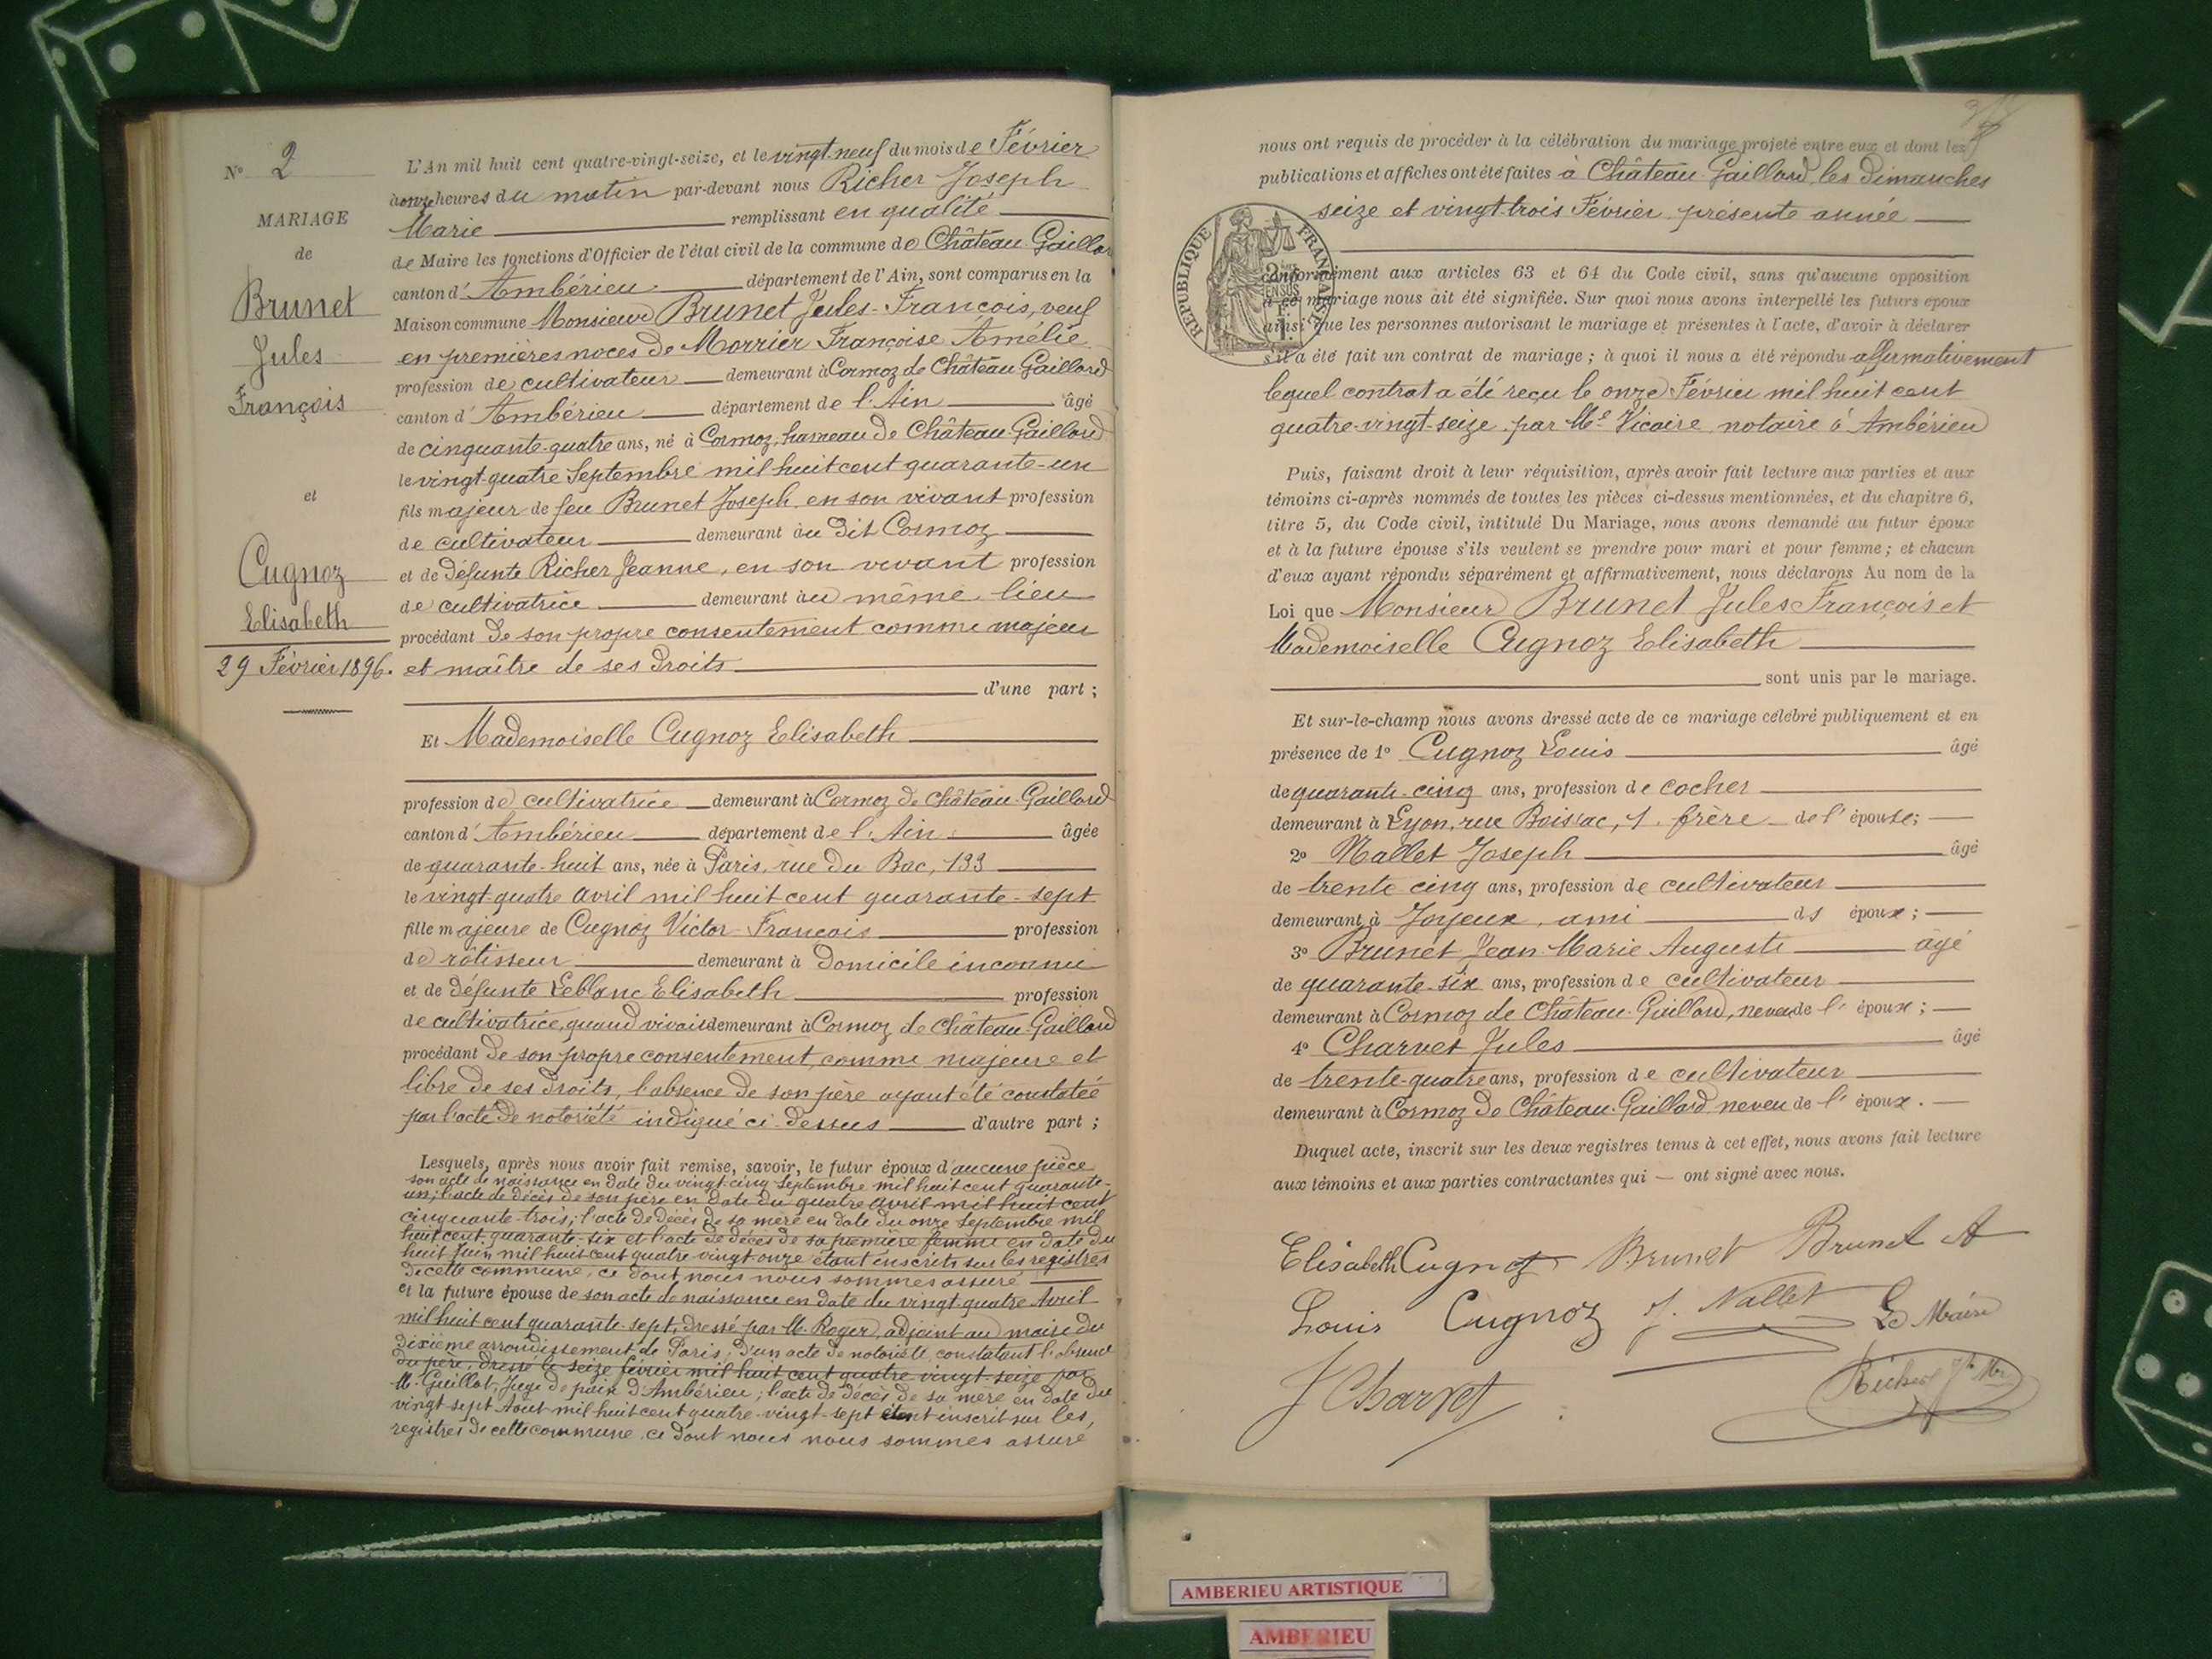 N° 2
MARIAGE
de
Brunet
Jules
François
et
Cugnoz
Elisabeth
29 Février 1896.
L'An mil huit cent quatre-vingt-seize, et le vingt-neuf du mois de Février
à onze heures du matin par-devant nous Richer Joseph
Marie remplissant en qualité
de Maire les fonctions d'Officier de l'état civil de la commune de Château-Gaillard
canton d'Ambérieu département de l'Ain, sont comparus en la
Maison commune Monsieur Brunet Jules-François, veuf
en premières noces de Morrier Françoise Amélie
profession de cultivateur demeurant à Cormoz de Château-Gaillard
canton d'Ambérieu département de l'Ain âgé
de cinquante-quatre ans, né à Cormoz, hameau de Château-Gaillard
le vingt-quatre Septembre mil huit cent quarante-un
fils majeur de feu Brunet Joseph, en son vivant profession
de cultivateur demeurant au dit Cormoz
et de défunte Richer Jeanne, en son vivant profession
de cultivatrice demeurant au même lieu
procédant de son propre consentement comme majeur
et maître de ses droits
d'une part ;
Et Mademoiselle Cugnoz Elisabeth
profession de cultivatrice demeurant à Cormoz de Château-Gaillard
canton d'Ambérieu département de l'Ain âgée
de quarante-huit ans, née à Paris, rue du Bac, 133
le vingt-quatre avril mil huit cent quarante-sept
fille majeure de Cugnoz Victor-François profession
de rôtisseur demeurant à domicile inconnu
et de défunte Leblanc Elisabeth profession
de cultivatrice, quand vivait demeurant à Cormoz de Château-Gaillard
procédant de son propre consentement, comme majeure et
libre de ses droits, l'absence de son père ayant été constatée
par l'acte de notoriété indiqué ci-dessus d'autre part ;
Lesquels, après nous avoir fait remise, savoir, le futur époux d'aucune pièce
son acte de naissance en date du vingt-cinq Septembre mil huit cent quarante-
un; l'acte de décès de son père en date du quatre avril mil huit cent
cinquante-trois; l'acte de décès de sa mère en date du onze Septembre mil
huit cent quarante-six et l'acte de décès de sa première femme en date du
huit Juin mil huit cent quatre vingt-onze étant inscrits sur les registres
de cette commune, ce dont nous nous sommes assuré
et la future épouse de son acte de naissance en date du vingt quatre Avril
mil huit cent quarante-sept, dressé par M. Roger, adjoint au maire du
dixième arrondissement de Paris; d'un acte de notoriété constatant l'absence
du père, dressé le seize février mil huit cent quatre vingt-seize par
M. Guillot, Juge de paix d'Ambérieu; l'acte de décès de sa mère en date du
vingt sept Aout mil huit cent quatre-vingt-sept étant inscrit sur les
registres de cette commune ce dont nous nous sommes assuré
nous ont requis de procéder à la célébration du mariage projeté entre eux et dont les
publications et affiches ont été faites à Château-Gaillard, les dimanches
seize et vingt-trois Février présente année
RÉPUBLIQUE FRANÇAISE
conformément aux articles 63 et 64 du Code civil, sans qu'aucune opposition
à ce mariage nous ait été signifiée. Sur quoi nous avons interpellé les futurs époux
ainsi que les personnes autorisant le mariage et présentes à l'acte, d'avoir à déclarer
s'il a été fait un contrat de mariage ; à quoi il nous a été répondu affirmativement
lequel contrat a été reçu le onze Février mil huit cent
quatre-vingt-seize par Me Vicaire notaire à Ambérieu
Puis, faisant droit à leur réquisition, après avoir fait lecture aux parties et aux
témoins ci-après nommés de toutes les pièces ci-dessus mentionnées, et du chapitre 6,
titre 5, du Code civil, intitulé Du Mariage, nous avons demandé au futur époux
et à la future épouse s'ils veulent se prendre pour mari et pour femme ; et chacun
d'eux ayant répondu séparément et affirmativement, nous déclarons Au nom de la
Loi que Monsieur Brunet Jules François et
Mademoiselle Cugnoz Elisabeth
sont unis par le mariage.
Et sur-le-champ nous avons dressé acte de ce mariage célébré publiquement et en
présence de 1° Cugnoz Louis âgé
de quarante-cinq ans, profession de cocher
demeurant à Lyon, rue Boissac, 1, frère de l'épouse;
2° Nallet Joseph âgé
de trente cinq ans, profession de cultivateur
demeurant à Joyeux, ami ds époux ;
3° Brunet Jean-Marie Auguste âgé
de quarante-six ans, profession de cultivateur
demeurant à Cormoz de Château-Gaillard, neveu de l'époux ;
4° Charvet Jules âgé
de trente-quatre ans, profession de cultivateur
demeurant à Cormoz de Château-Gaillard neveu de l'époux.
Duquel acte, inscrit sur les deux registres tenus à cet effet, nous avons fait lecture
aux témoins et aux parties contractantes qui — ont signé avec nous.
Elisabeth Cugnoz Brunet Brunet A
Louis Cugnoz J. Nallet Le Maire
J Charvet Richer Jh Mie
AMBERIEU ARTISTIQUE
AMBERIEU